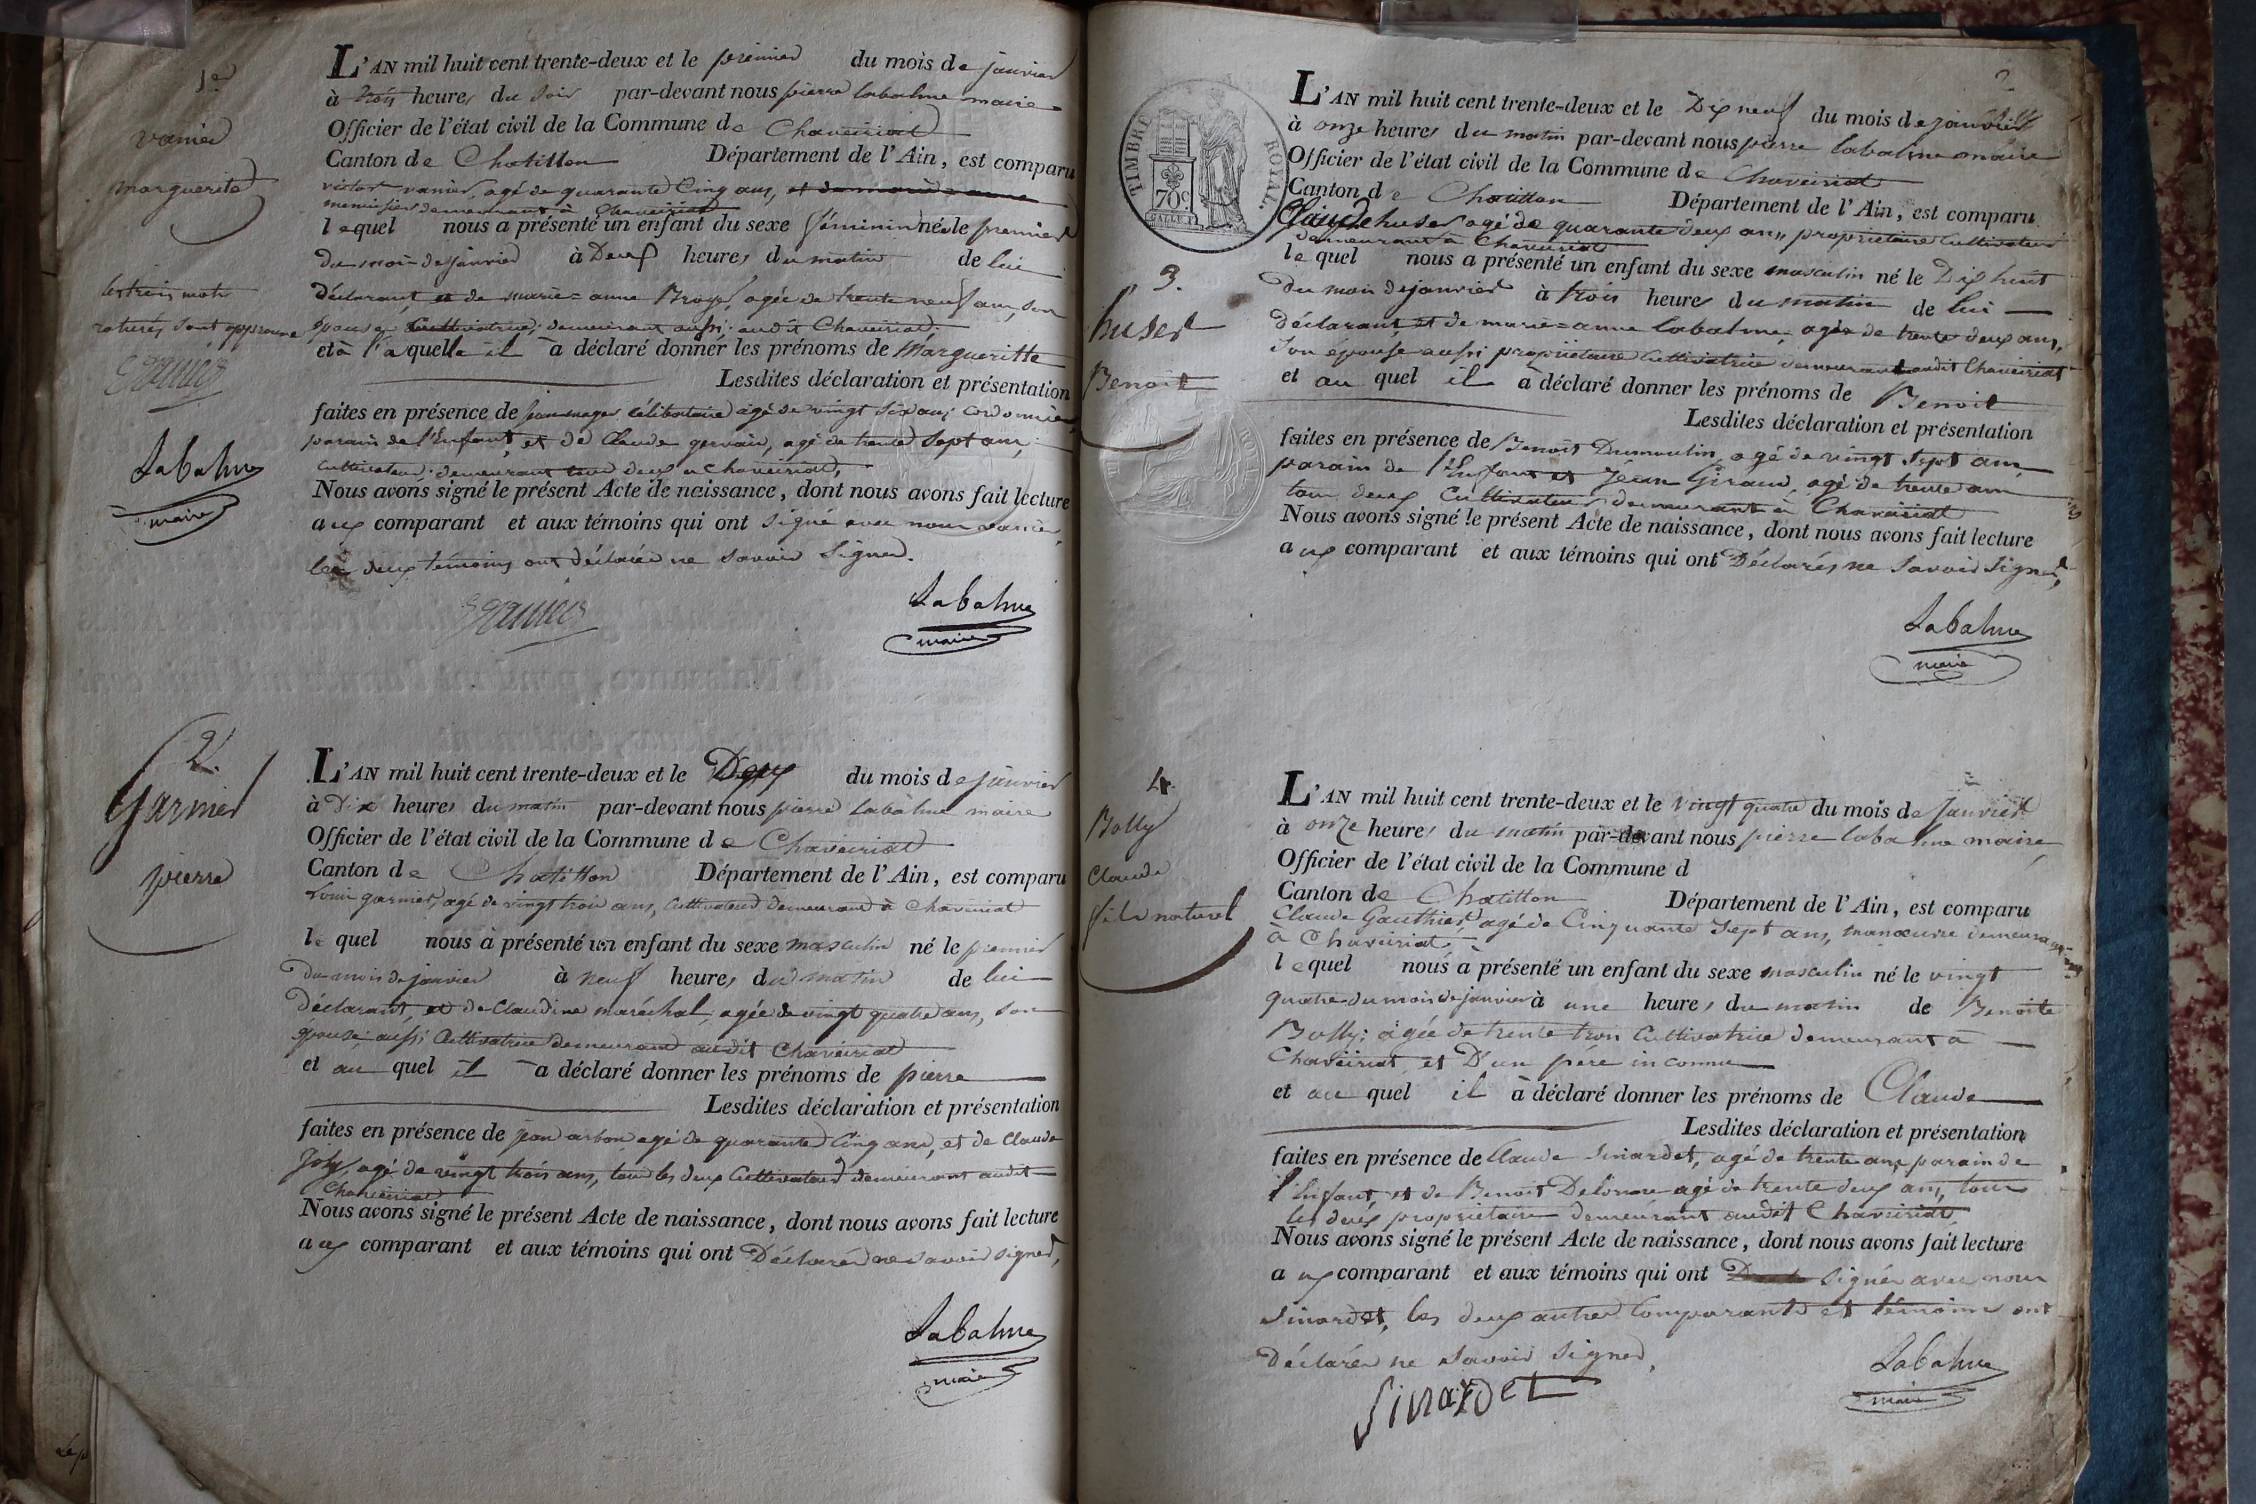 1e
vanier
marguerite
les trois mots
raturés sont approuvé
Vanier
Labalme
maire
L'AN mil huit cent trente-deux et le premier du mois de janvier
à trois heures du soir par-devant nous pierre labalme maire
Officier de l'état civil de la Commune de Chaveiriat
Canton de Chatillon Département de l'Ain, est comparu
victor vanier, agé de quarante Cinq ans, et de marie = anne
menuisier demeurant à Chaveiriat
lequel nous a présenté un enfant du sexe féminin née le premier
du mois de janvier à Deux heures du matin de lui
déclarant, et de marie = anne Broyer, agée de trente neuf ans, son
épouse Cultivatrice, demeurant aussi audit Chaveiriat.
et à laquelle il a déclaré donner les prénoms de Margueritte
Lesdites déclaration et présentation
faites en présence de jean célibataire agé de vingt six ans, cordonnier,
parain de l'Enfant, et de Claude gervais, agé de trente sept ans,
cultivateur, demeurant tous deux a Chaveiriat,
Nous avons signé le présent Acte de naissance, dont nous avons fait lecture
aux comparant et aux témoins qui ont signé avec nous vanier,
les deux témoins ont déclarés ne savoir signer.
Vanier
Labalme
maire
2.
Garnier
pierre
L'AN mil huit cent trente-deux et le Deux du mois de janvier
à Dix heures du matin par-devant nous pierre labalme maire
Officier de l'état civil de la Commune de Chaveiriat
Canton de Chatillon Département de l'Ain, est comparu
Louis garnier, agé de vingt trois ans, Cultivateur demeurant à Chaveiriat
lequel nous à présenté un enfant du sexe masculin né le premier
du mois de janvier à neuf heures du matin de lui
Déclarant, et de Claudine maréchal, agée de vingt quatre ans, son
épouse aussi Cultivatrice demeurant audit Chaveiriat
et au quel il a déclaré donner les prénoms de pierre
Lesdites déclaration et présentation
faites en présence de jean arbon agé de quarante Cinq ans, et de Claude
Joly, agé de vingt trois ans, tous les deux Cultivateurs demeurant audit
Chaveiriat
Nous avons signé le présent Acte de naissance, dont nous avons fait lecture
aux comparant et aux témoins qui ont Déclarés ne savoir signer,
Labalme
maire
2
TIMBRE ROYAL.
70c.
3.
huser
Benoit
L'AN mil huit cent trente-deux et le Dix neuf du mois de janvier
à onze heures du matin par-devant nous pierre labalme maire
Officier de l'état civil de la Commune de Chaveiriat
Canton de Chatillon Département de l'Ain, est comparu
Claude huser agé de quarante deux ans, propriétaire Cultivateur
demeurant à Chaveiriat
lequel nous a présenté un enfant du sexe masculin né le Dix huit
du mois de janvier à trois heures du matin de lui
déclarant, et de marie = anne labalme, agée de trente deux ans,
son épouse aussi propriétaire Cultivatrice demeurant audit Chaveiriat
et au quel il a déclaré donner les prénoms de Benoit
Lesdites déclaration et présentation
faites en présence de Benoit Dumoulin, agé de vingt sept ans,
parain de l'Enfant et Jean Giraud, agé de trente ans
tous deux Cultivateurs demeurant à Chaveiriat
Nous avons signé le présent Acte de naissance, dont nous avons fait lecture
aux comparant et aux témoins qui ont Déclarés ne savoir signer,
Labalme
maire
4.
Bolly
Claude
fils naturel
L'AN mil huit cent trente-deux et le vingt quatre du mois de janvier
à onze heures du matin par-devant nous pierre labalme maire
Officier de l'état civil de la Commune d
Canton de Chatillon Département de l'Ain, est comparu
Claude Gauthier, agé de Cinquante sept ans, manoeuvre demeurant
à Chaveiriat
lequel nous à présenté un enfant du sexe masculin né le vingt
quatre du mois de janvier à une heure, du matin de Benoite
Bolly, agée de trente trois Cultivatrice demeurant à
Chaveiriat, et D'un pére inconnu
et au quel il à déclaré donner les prénoms de Claude
Lesdites déclaration et présentation
faites en présence de Claude Sinardet, agé de trente ans parain de
l'Enfant, et de Benoit agé de trente deux ans, tous
les deux propriétaire demeurant audit Chaveiriat
Nous avons signé le présent Acte de naissance, dont nous avons fait lecture
aux comparant et aux témoins qui ont signés avec nous
Sinardet, les deux autres Comparants et témoins ont
Déclarés ne savoir signer,
Sinardet
Labalme
maire